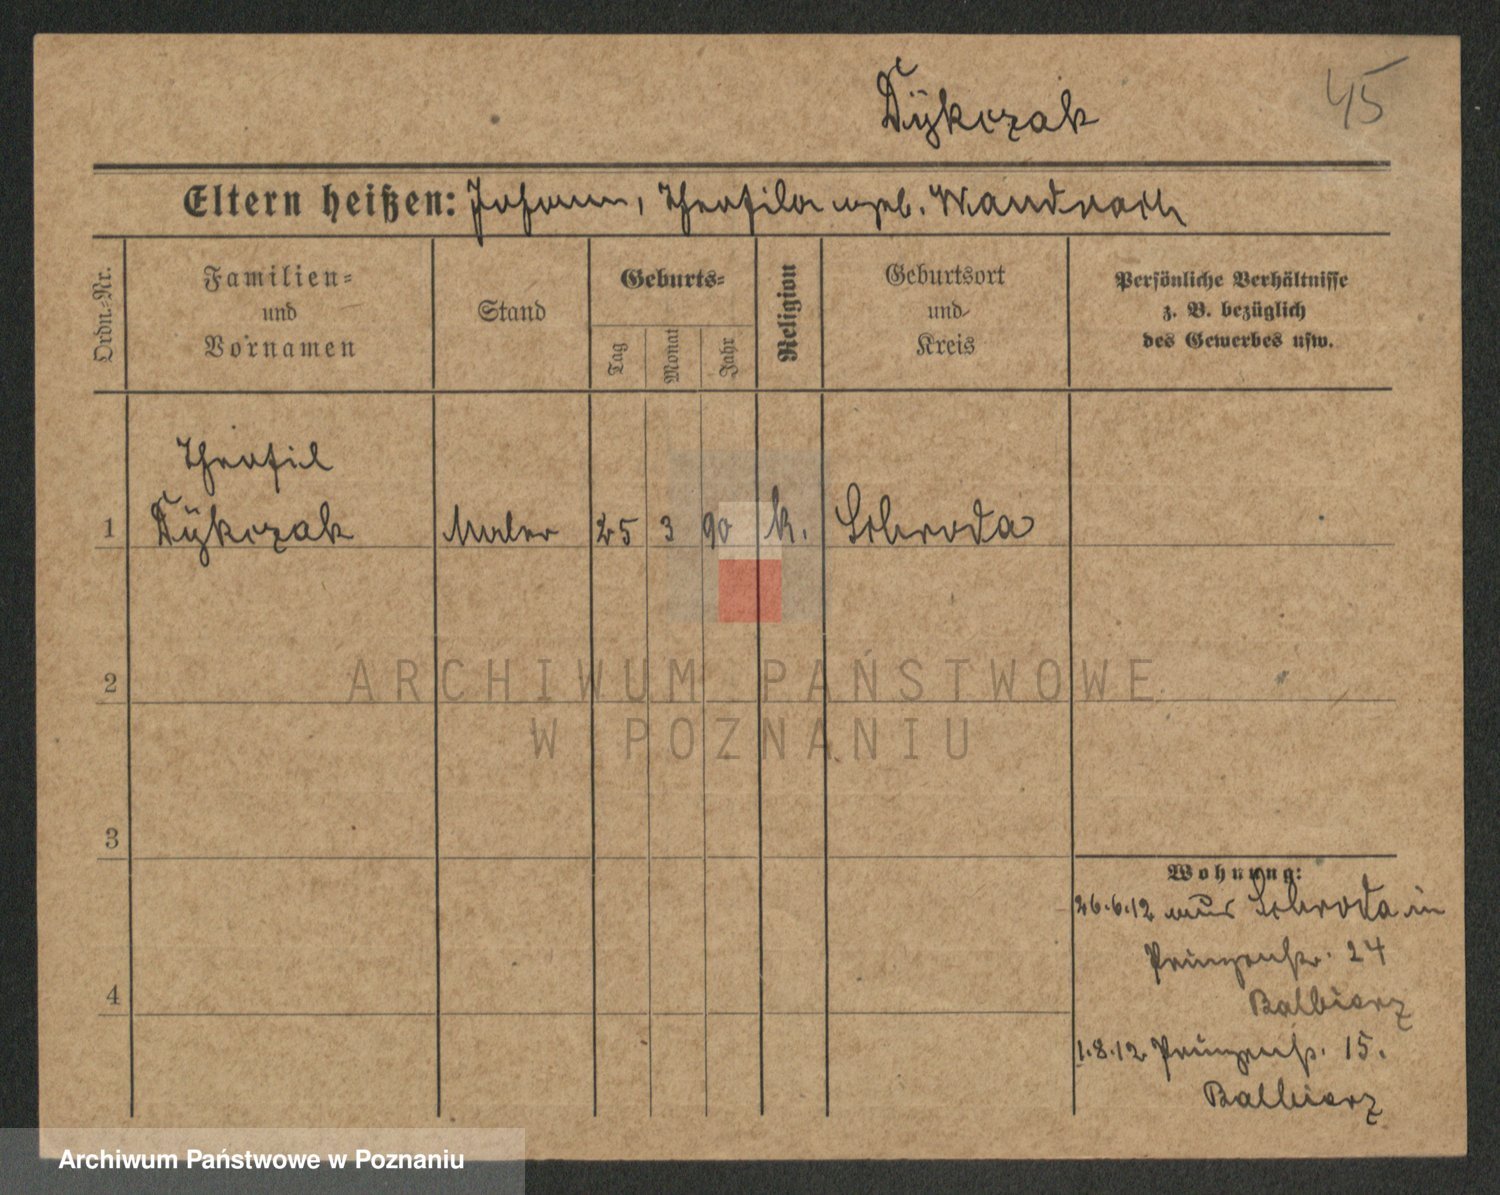 Dÿkczak
45
Eltern heißen: Johann, Theofila geb.
Ordn.-Nr.
Familien-
und
Vornamen
Stand
Geburts-
Tag
Monat
Jahr
Religion
Geburtsort
und
Kreis
Persönliche Verhältnisse
z. B. bezüglich
des Gewerbes usw.
Theofil
1 Dÿkczak Maler 25 3 90 k. Schroda
2
3
4
Wohnung:
26.6.12 aus Schroda in
Prinzenstr. 24
Balbierz
1.8.12 Prinzenstr. 15.
Balbierz
ARCHIWUM PAŃSTWOWE
W POZNANIU
Archiwum Państwowe w Poznaniu